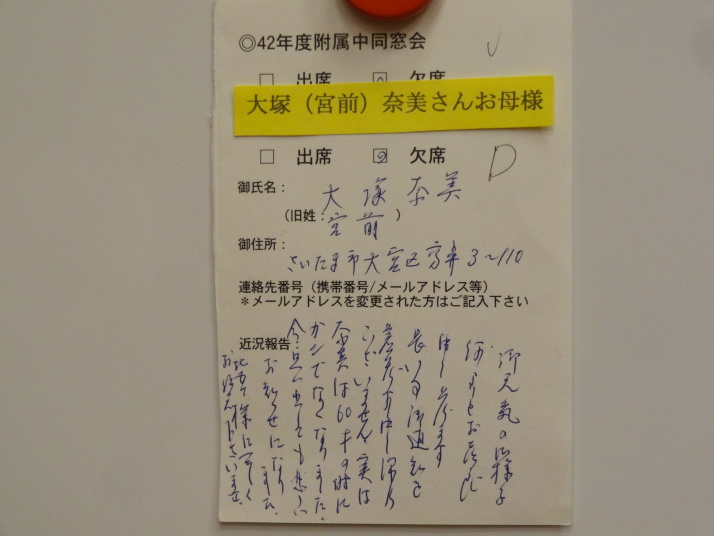 ◎42年度附属中同窓会
□ 出席 欠席
大塚（宮前）奈美さんお母様
□ 出席 欠席
D
御氏名：
大塚奈美
（旧姓：宮前）
御住所：
さいたま市大宮区 3～110
連絡先番号（携帯番号/メールアドレス等）
＊メールアドレスを変更された方はご記入下さい
近況報告：
御元気の御様子
何よりとお喜び
申し上げます
長い間御通知を
申し訳
ございません。実は
奈美は60才の時に
ガンでなくなりました。
今思い出しても悲しい
お知らせになりました。
皆様に宜しく
お伝え下さいませ。